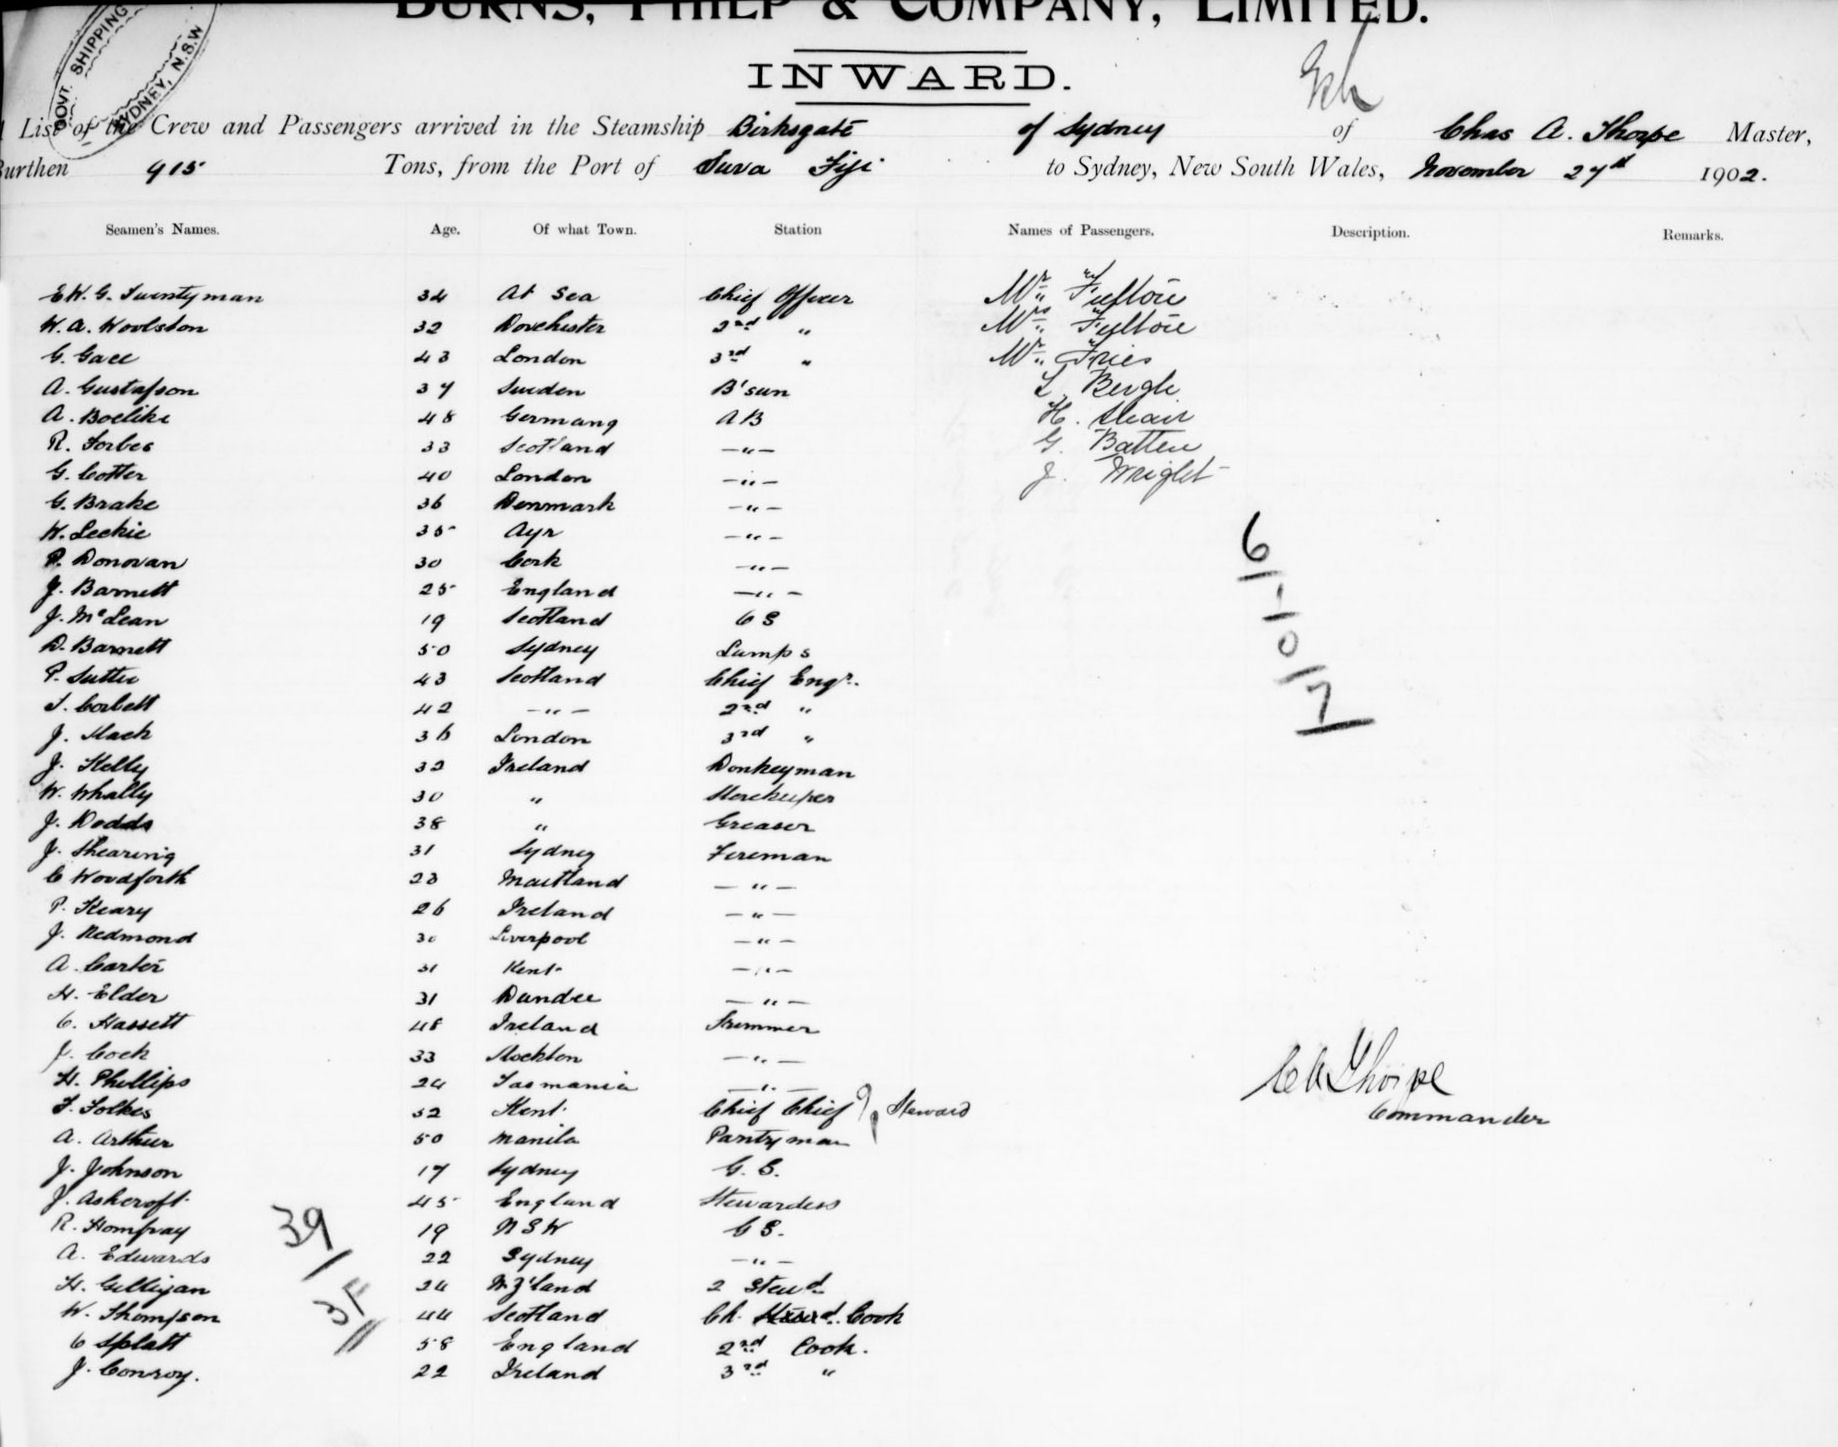 BURNS, PHILP & COMPANY, LIMITED.
INWARD.
GOVT. SHIPPING
SYDNEY, N.S.W
List of the Crew and Passengers arrived in the Steamship Birksgate of Sydney of Chas A. Thorpe Master,
Burthen 915 Tons, from the Port of Suva Fiji to Sydney, New South Wales, November 27th 1902.
Seamen's Names. Age. Of what Town. Station Names of Passengers. Description. Remarks.
E.W.G. Twentyman 34 At Sea Chief Officer Mr Fulton
W. A. Woolston 32 Dorchester 2nd " Mrs Fulton
G. Gace 43 London 3rd " Mr Fries
A. Gustafson 37 Sweden B'sun L. Bergh
A. Boelike 48 Germany AB H.
R. Forbes 33 Scotland -"- G. Batten
G. Cotter 40 London -"- J. Wright
G. Brake 36 Denmark -"-
W. Leckie 35 Ayr -"-
P. Donovan 30 Cork -"-
J. Barnett 25 England -"-
J. McLean 19 Scotland
D. Barnett 50 Sydney Lamps
P. Suttie 43 Scotland Chief Engr.
T. Corbett 42 -"- 2nd "
J. Slack 36 London 3rd "
J. Kelly 32 Ireland Donkeyman
W. Whally 30 " Storekeeper
J. Dodds 38 " Greaser
J. Shearing 31 Sydney Fireman
C Woodforth 23 Maitland -"-
P. Keary 26 Ireland -"-
J. Redmond 30 Liverpool -"-
A. Carter 31 Kent -"-
H. Elder 31 Dundee -"-
C. Hassett 48 Ireland Trimmer
J. Cock 33 Stockton -"-
H. Phillips 24 Tasmania -"-
F. Folkes 52 Kent Chief Chief Steward
A. Arthur 50 Manila Pantryman
J. Johnson 17 Sydney G. S.
J. Ashcroft 45 England Stewardess
R. Homfray 19 NSW
A. Edwards 22 Sydney -"-
H. Gilligan 24 N.Z'land 2 Stewd
W. Thompson 44 Scotland Ch. Cook
C Splatt 58 England 2nd Cook.
J. Conroy. 22 Ireland 3rd "
6
1
0
7
C A Thorpe
Commander
39